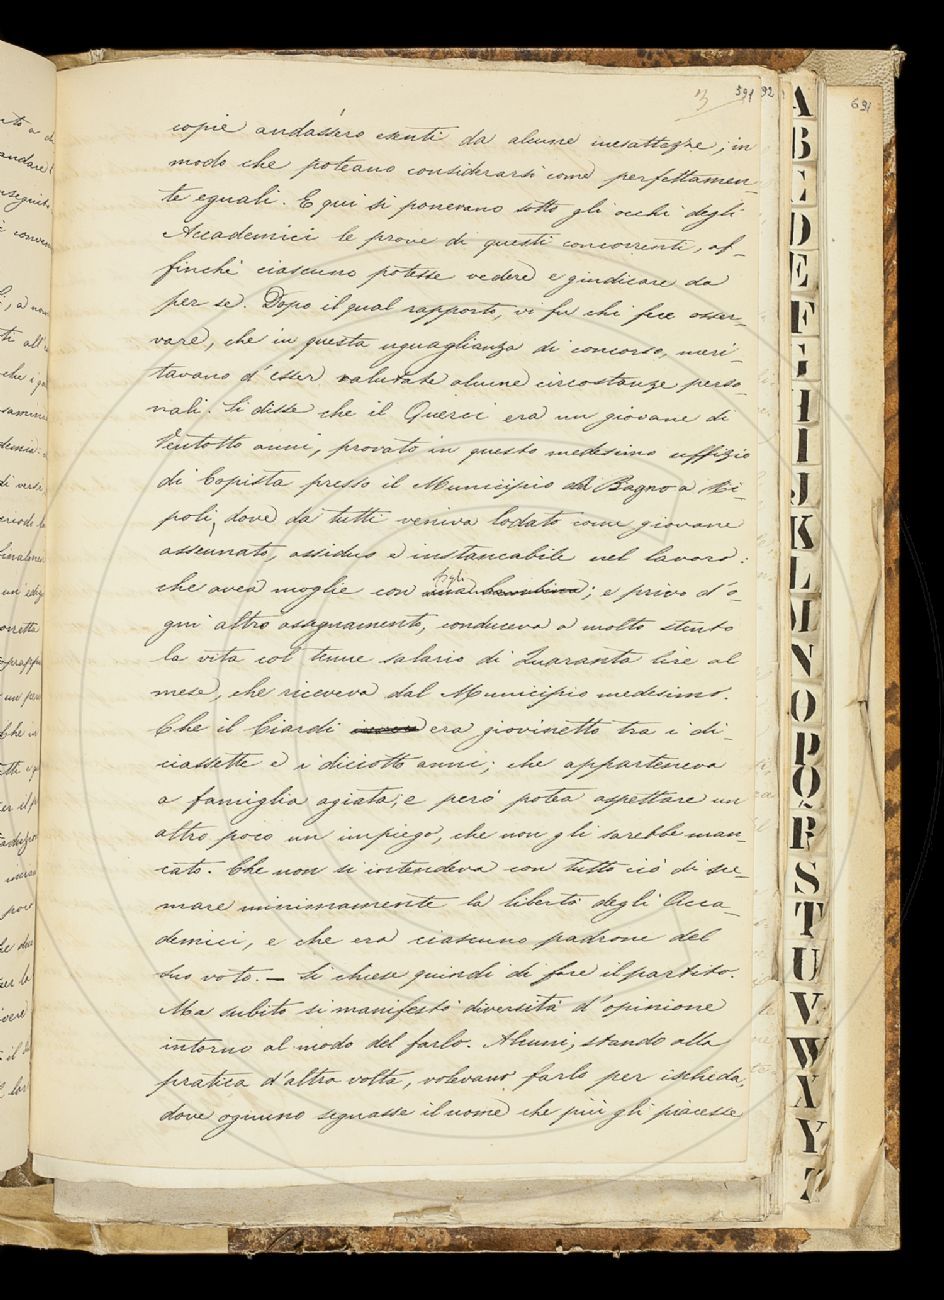 3
591
92
691
copie andassero esenti da alcune inesattezze; in
modo che poteano considerarsi come perfettamen-
te eguali. E qui si ponevano sotto gli occhi degli
Accademici le prove di questi concorrenti, af-
finché ciascuno potesse vedere e giudicare da
per se. Dopo il qual rapporto, vi fu chi fece osser-
vare, che in questa uguaglianza di concorso, meri-
tavano d'esser valutate alcune circostanze perso-
nali. Si disse che il Querci era un giovane di
Ventotto anni, provato in questo medesimo uffizio
di Copista presso il Municipio del Bagno a Ri-
poli, dove da tutti veniva lodato come giovane
assennato, assiduo e instancabile nel lavoro:
che avea moglie con figli una bambina; e privo d'o-
gni altro assegnamento, conduceva a molto stento
la vita col tenue salario di Quaranta lire al
mese, che riceveva dal Municipio medesimo.
Che il Ciardi era giovinetto tra i di-
ciassette e i diciotto anni; che apparteneva
a famiglia agiata; e però potea aspettare un
altro poco un impiego, che non gli sarebbe man-
cato. Che non si intendeva con tutto ciò di sce-
mare minimamente la libertà degli Acca-
demici, e che era ciascuno padrone del
suo voto. — Si chiese quindi di fare il partito.
Ma subito si manifestò diversità d'opinione
intorno al modo del farlo. Alcuni, stando alla
pratica d'altra volta, volevano farlo per ischeda,
dove ognuno segnasse il nome che più gli piacesse
A
B
C
D
E
F
G
H
I
J
K
L
M
N
O
P
Q
R
S
T
U
V
W
X
Y
Z